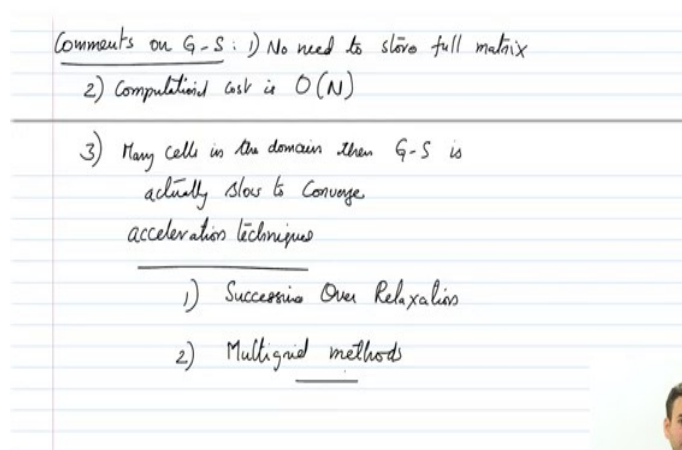 Comments on G-S : 1) No need to store full matrix
2) Computational cost is O(N)
3) Many cells in the domain then G-S is
actually slow to converge
acceleration techniques
1) Successive Over Relaxation
2) Multigrid methods